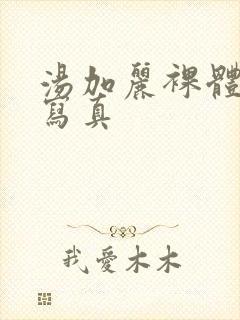 湯加麗裸體
寫真
我愛木木